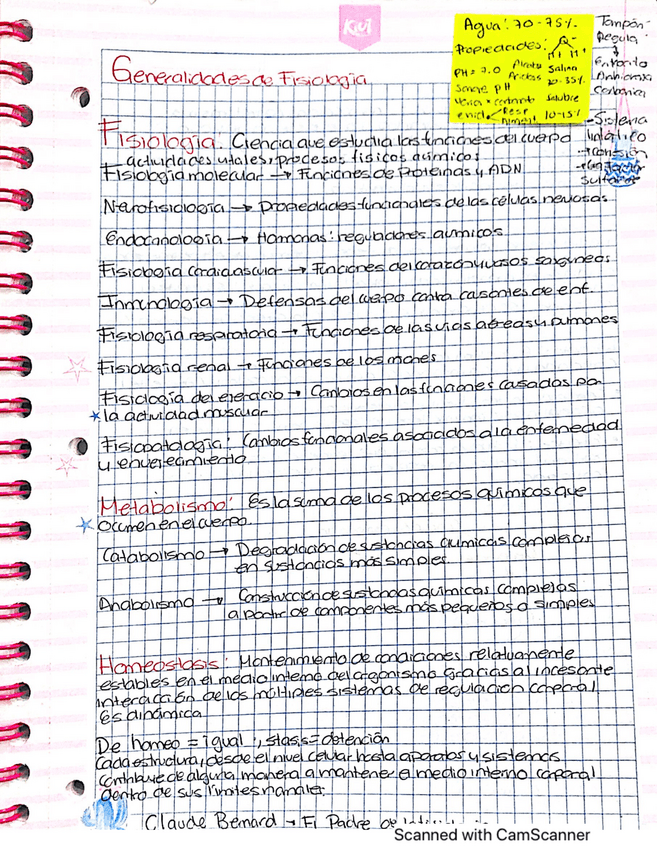 Kiut
Agua: 70-75%
Propiedades:
PH = 7.0
Salina
20-35%
Sangre pH
soluble
10-15%
Tampón
Regula
Entrada
Anhidrasa
Carbónica
- Sistema
→ cohesión
Generalidades de Fisiología
Fisiología. Ciencia que estudia las funciones del cuerpo
actividades vitales, procesos físicos químicos
Fisiología molecular → Funciones de Proteínas y ADN
Neurofisiología → Propiedades funcionales de las células nerviosas
Endocrinología → Hormonas: reguladores químicos
Fisiología cardiovascular → Funciones del corazón y vasos sanguíneos
Inmunología → Defensas del cuerpo contra causantes de enf.
Fisiología respiratoria → Funciones de las vías aéreas y pulmones
Fisiología renal → Funciones de los riñones
Fisiología del ejercicio → Cambios en las funciones causados por
la actividad muscular
Fisiopatología: Cambios funcionales asociados a la enfermedad
y envejecimiento
Metabolismo: Es la suma de los procesos químicos que
ocurren en el cuerpo.
Catabolismo → Degradación de sustancias químicas complejas
en sustancias más simples.
Anabolismo → Construcción de sustancias químicas complejas
a partir de componentes más pequeños o simples
Homeostasis: Mantenimiento de condiciones relativamente
estables en el medio interno del organismo gracias al incesante
interacción de los múltiples sistemas de regulación corporal
Es dinámica
De homeo = igual, stasis = detención
Cada estructura, desde el nivel celular hasta aparatos y sistemas
contribuye de alguna manera a mantener el medio interno corporal
dentro de sus límites normales.
Claude Bernard → El Padre de
Scanned with CamScanner